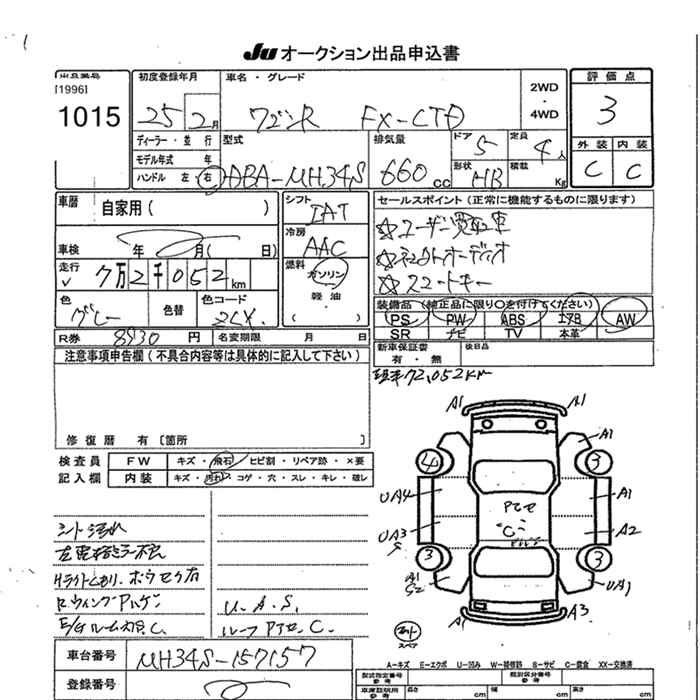 JU オークション出品申込書
出品票番 初度登録年月 車名・グレード 評価点
[1996]
1015 25年2月 ワゴンR FX-LTD 2WD・4WD 3
ディーラー・並行 型式 排気量 ドア 5 定員 4人 外装 内装
モデル年式 年 形状 HB 積載 Kg
ハンドル 左 右 DBA-MH34S 660cc C C
車暦 自家用( ) シフト IAT セールスポイント(正常に機能するものに限ります)
☆ユーザー買取車
冷房 AAC
車検 年 月( 日)
☆ネットオーディオ
走行 7万2千052km 燃料 ガソリン・軽油
☆スマートキー
色 グレー 色替 色コード ZCX
装備品(純正品に限り○を付けてください)
PS PW ABS エアB AW
SR ナビ TV 本革
R券 8930円 名変期限 月 日
新車保証書 有・無 後日品
注意事項申告欄(不具合内容等は具体的に記入して下さい)
現車72,052km
修復暦 有[箇所 ]
検査員 FW キズ・飛石・ヒビ割・リペア跡・×要
記入欄 内装 キズ・汚れ・コゲ・穴・スレ・キレ・破レ
A1 A1
A1
4 3
UA4 A1
PTセ
C
UA3 A2
S
3 3
A1
S2 UA1
A1 A3
シート汚れ
H.ライトくもり.
R.ウィング
E/Gルーム
U.A.S.
ルーフPTセ.C.
スペア
車台番号 MH34S-157157
登録番号
A-キズ E-エクボ U-凹み W-補修跡 S-サビ C-腐食 XX-交換済
型式指定番号 参考 類別区分番号 参考
車庫証明用 参考 長さ cm 幅 cm 高さ cm